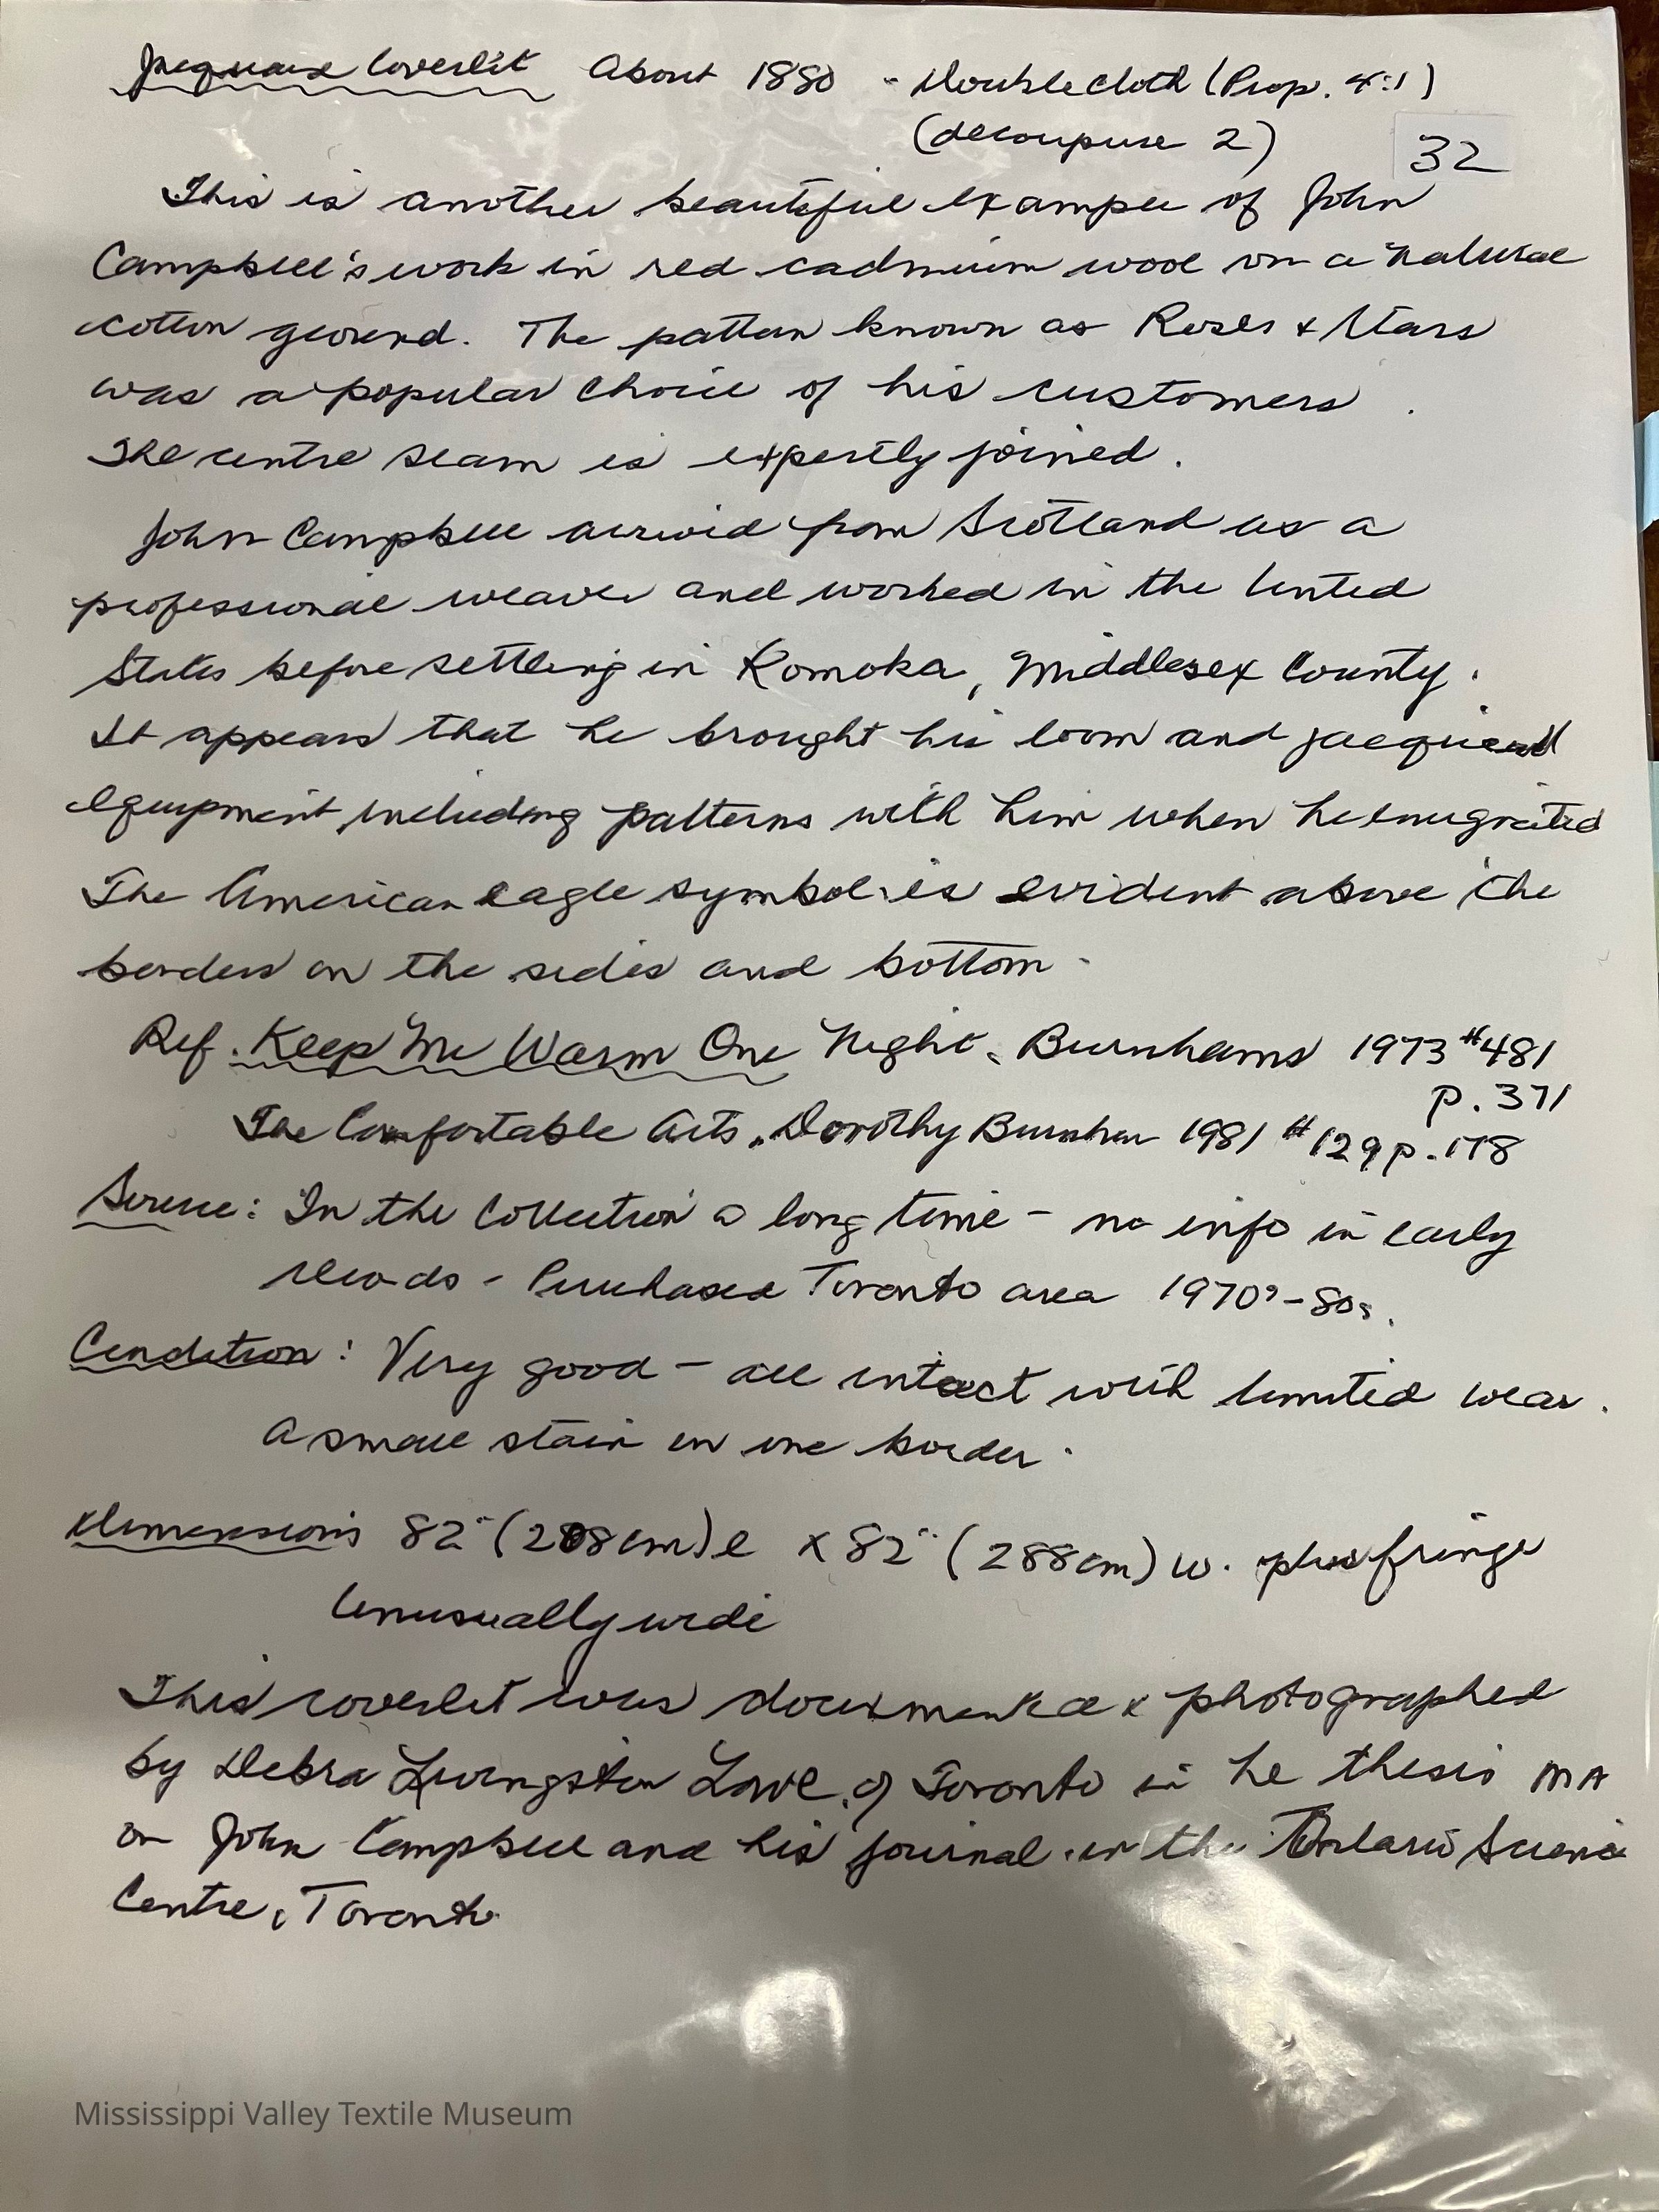 Jacquard Coverlet About 1880 - Doublecloth (Prop. 4:1)
(decoupure 2)
32
This is another beautiful example of John
Campbell's work in red cadmium wool on a natural
cotton ground. The pattern known as Roses & Stars
was a popular choice of his customers.
The centre seam is expertly joined.
John Campbell arrived from Scotland as a
professional weaver and worked in the United
States before settling in Komoka, Middlesex County.
It appears that he brought his loom and jacquard
equipment including patterns with him when he emigrated
The American eagle symbol is evident above the
borders on the sides and bottom.
Ref. Keep Me Warm One Night, Burnhams 1973 #481
p. 371
The Comfortable Arts, Dorothy Burnham 1981 #129 p. 178
Source: In the Collection a long time - no info in early
records - Purchased Toronto area 1970s-80s.
Condition: Very good - all intact with limited wear.
A small stain in one border.
Dimensions 82" (208cm) l x 82" (288cm) w. plus fringe
Unusually wide
This coverlet was documented & photographed
by Debra Livingston Lowe of Toronto in he thesis MA
on John Campbell and his journal in the Ontario Science
Centre, Toronto
Mississippi Valley Textile Museum